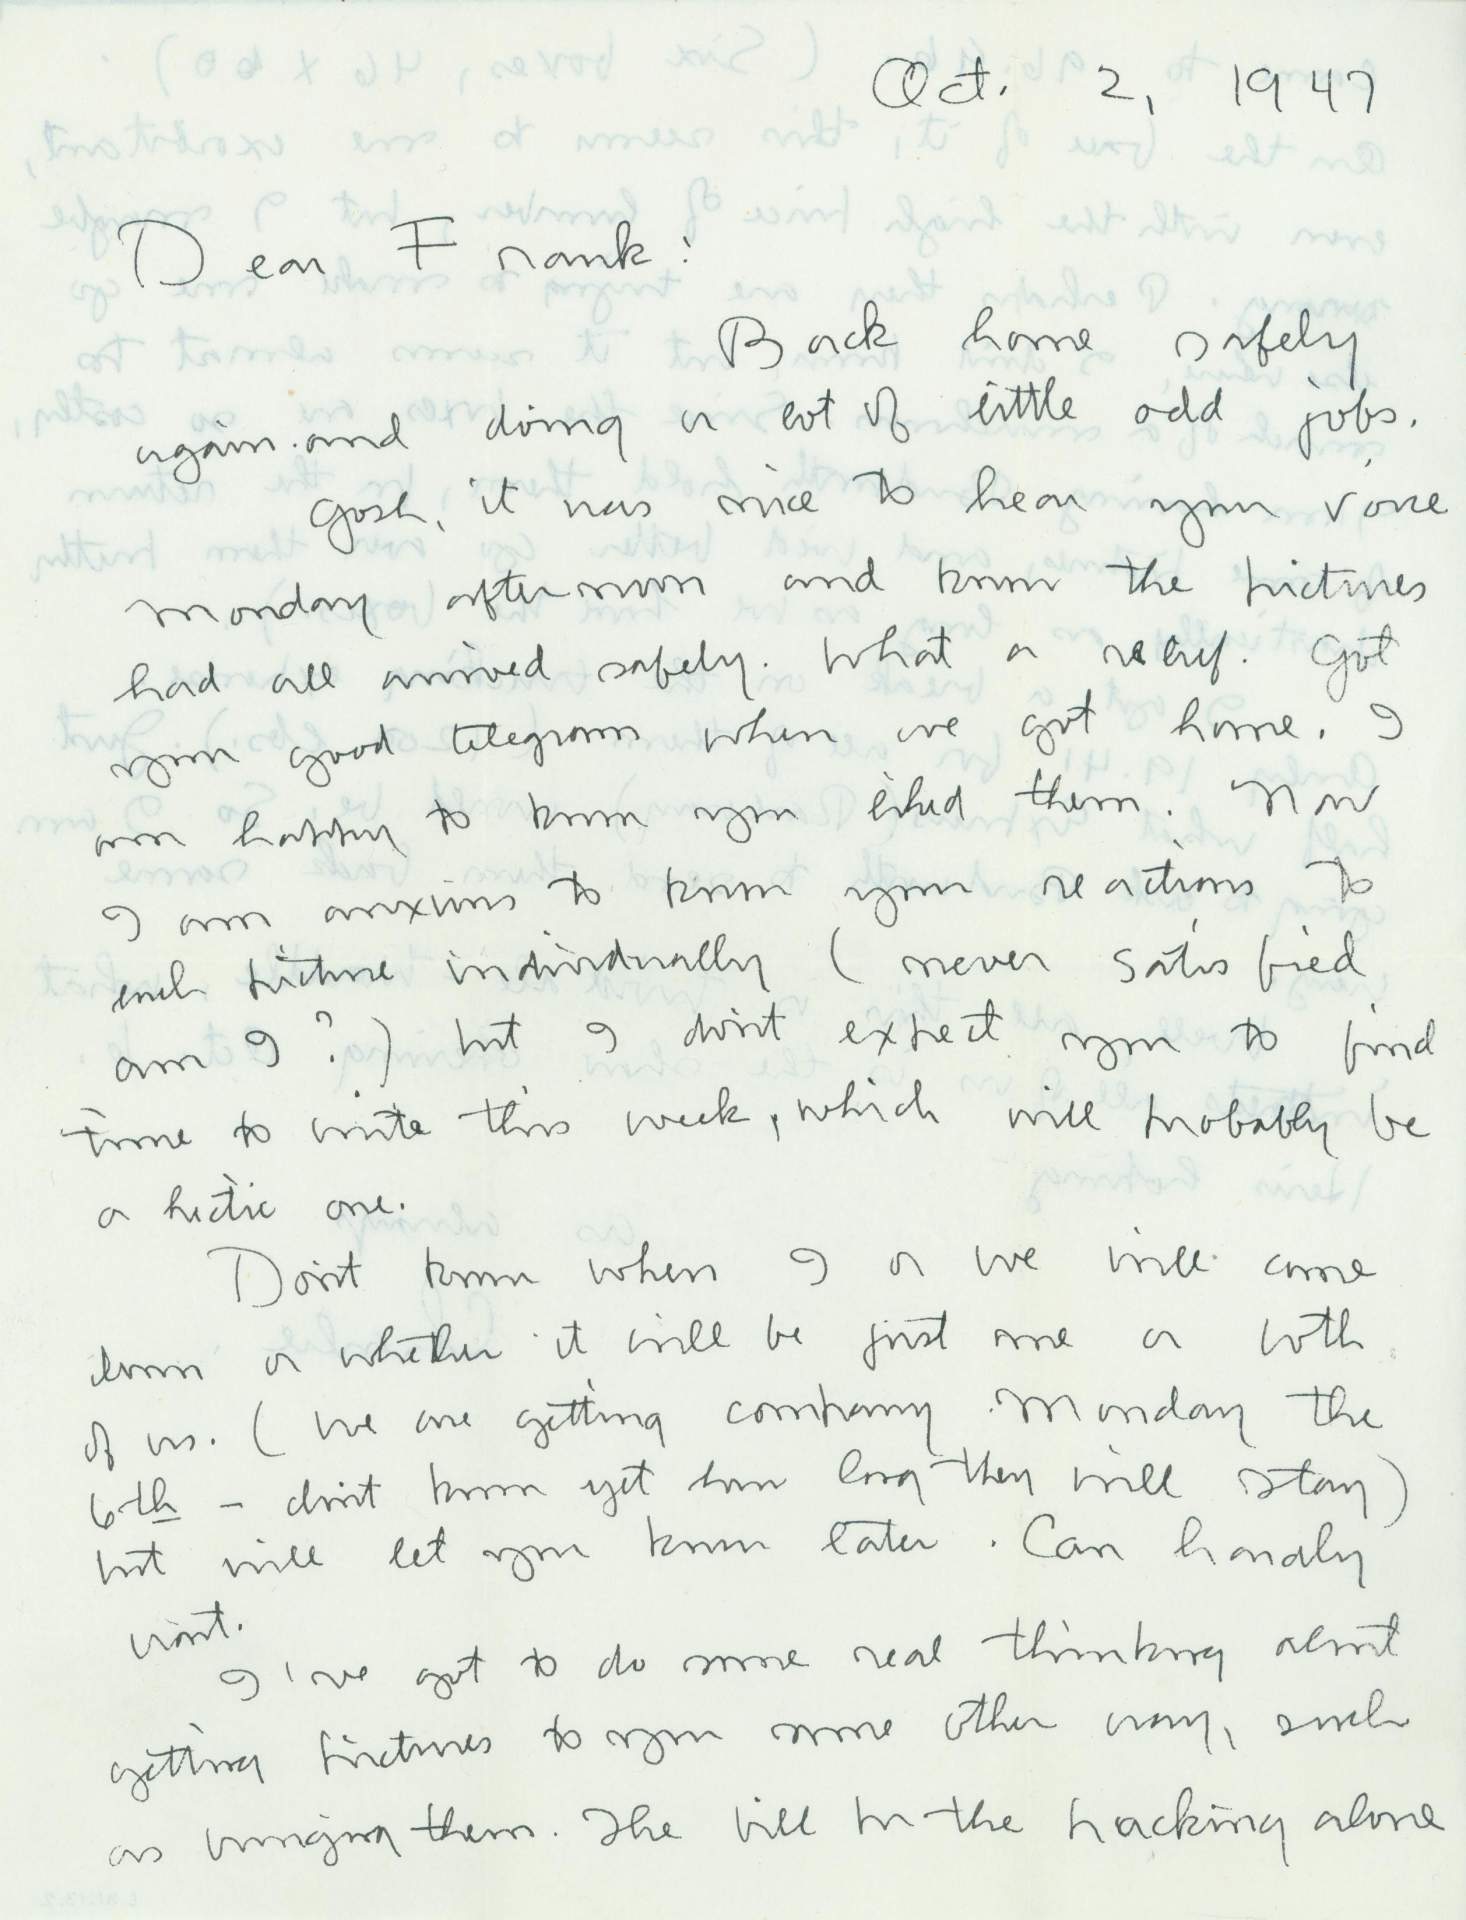 Oct. 2, 1947
Dear Frank:
Back home safely
again and doing a lot of little odd jobs.
Gosh, it was nice to hear your voice
Monday afternoon and know the pictures
had all arrived safely. What a relief. Got
your good telegram when we got home. I
am happy to know you liked them. Now
I am anxious to know your reactions to
each picture individually (never satisfied
am I?) but I don't expect you to find
time to write this week, which will probably be
a hectic one.
Don't know when I or we will come
down or whether it will be just me or both
of us. (We are getting company Monday the
6th - don't know yet how long they will stay)
but will let you know later. Can hardly
wait.
I've got to do some real thinking about
getting pictures to you some other way, such
as bringing them. The bill for the packing alone